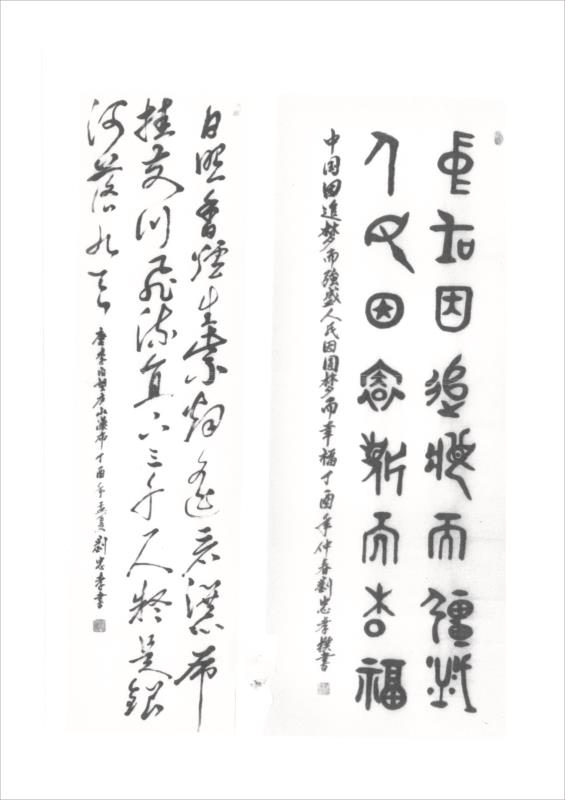 中国因追夢而彊盛
人民因圓夢而幸福
中国因追梦而強盛人民因圆梦而幸福丁酉年仲春劉忠孝撰書
日照香爐生紫烟遥看瀑布
挂前川飛流直下三千尺疑是銀
河落九天
唐李白望庐山瀑布丁酉年孟夏劉忠孝書